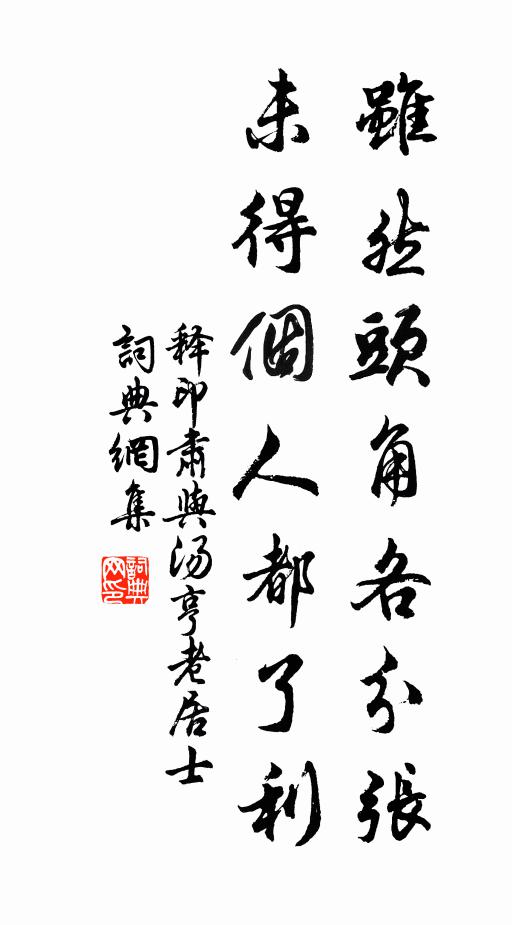 雖然頭角各分張
未得個人都了利
释印肅與汤亨老居士
詞典網集
詞典网印